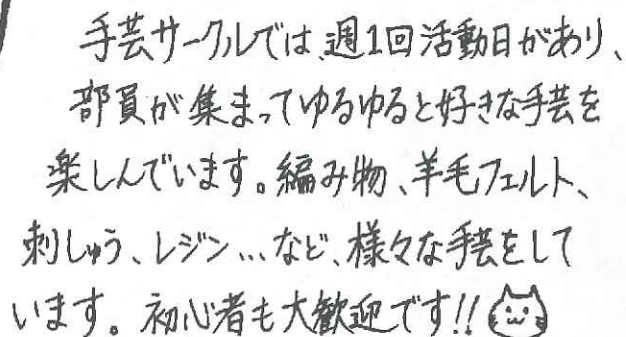 手芸サークルでは、週1回活動日があり、
部員が集まってゆるゆると好きな手芸を
楽しんでいます。編み物、羊毛フェルト、
刺しゅう、レジン…など、様々な手芸をして
います。初心者も大歓迎です!!